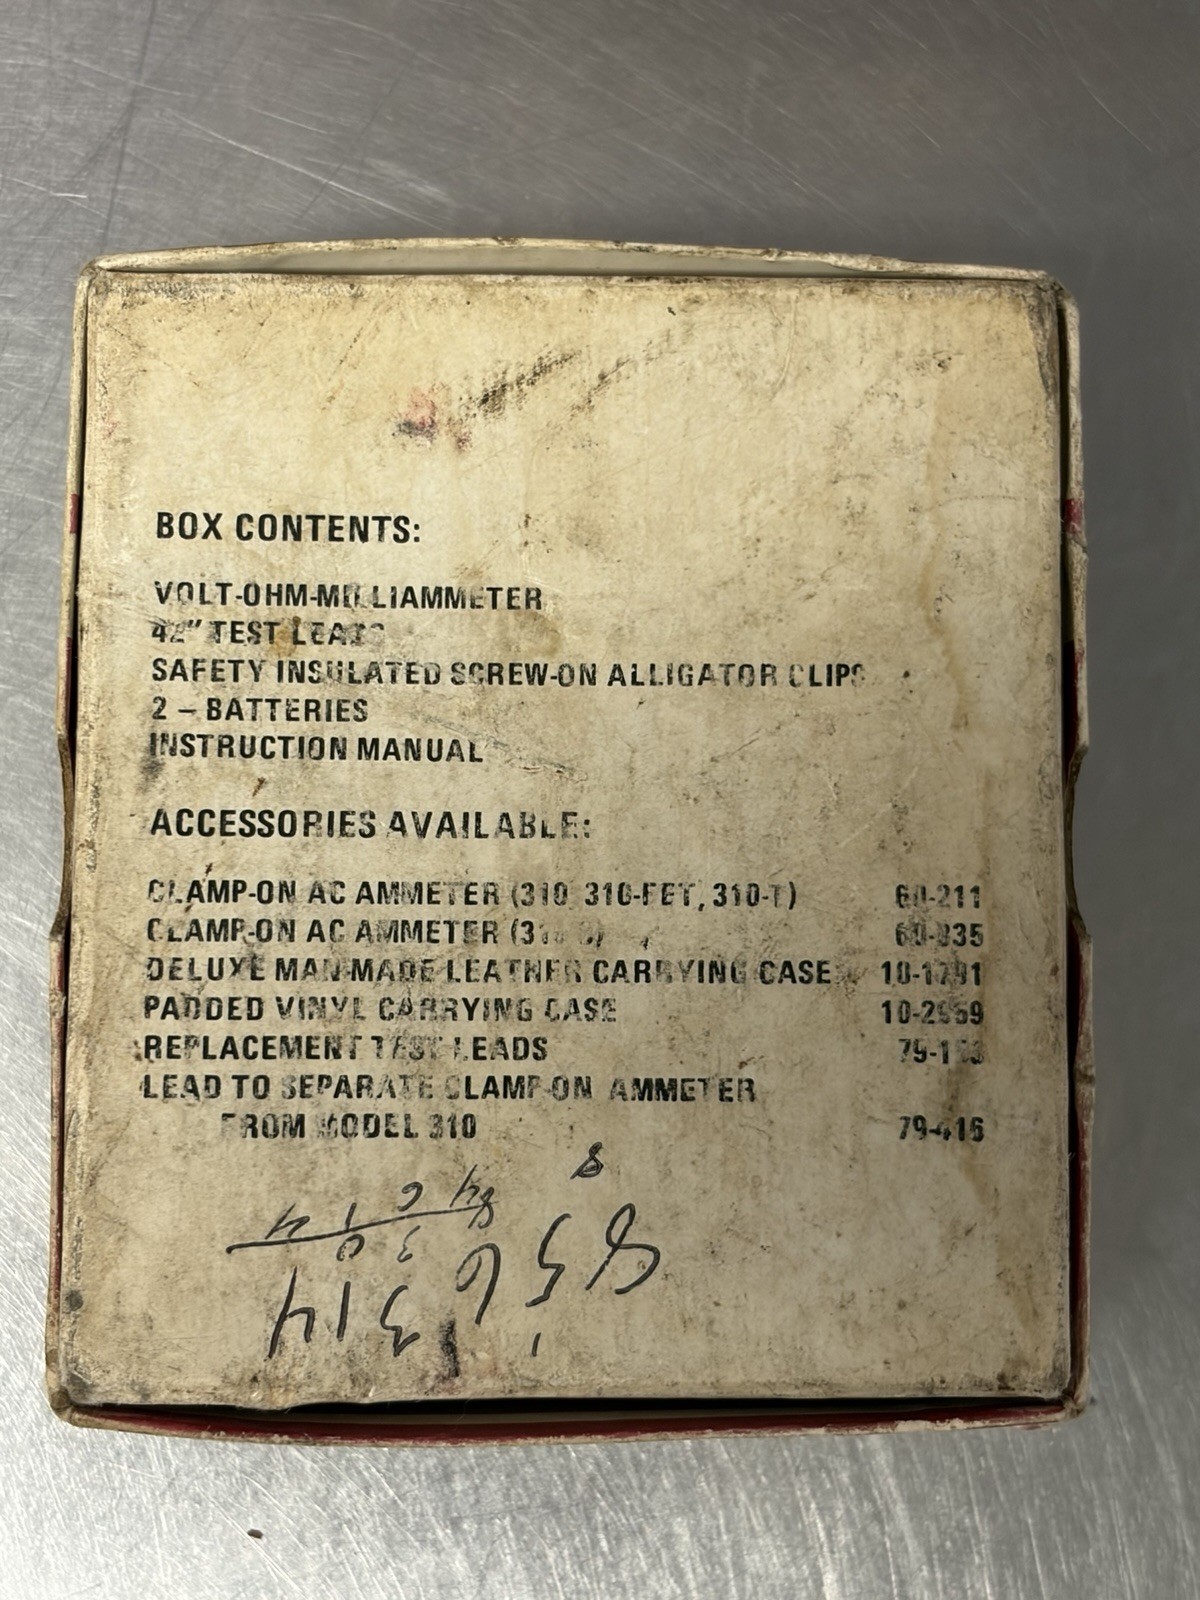 BOX CONTENTS:
VOLT-OHM-MILLIAMMETER
42" TEST LEADS
SAFETY INSULATED SCREW-ON ALLIGATOR CLIPS
2 – BATTERIES
INSTRUCTION MANUAL
ACCESSORIES AVAILABLE:
CLAMP-ON AC AMMETER (310, 310-FET, 310-T) 60-211
CLAMP-ON AC AMMETER
DELUXE MAN-MADE LEATHER CARRYING CASE 10-1791
PADDED VINYL CARRYING CASE
REPLACEMENT TEST LEADS
LEAD TO SEPARATE CLAMP-ON AMMETER
FROM MODEL 310 79-416